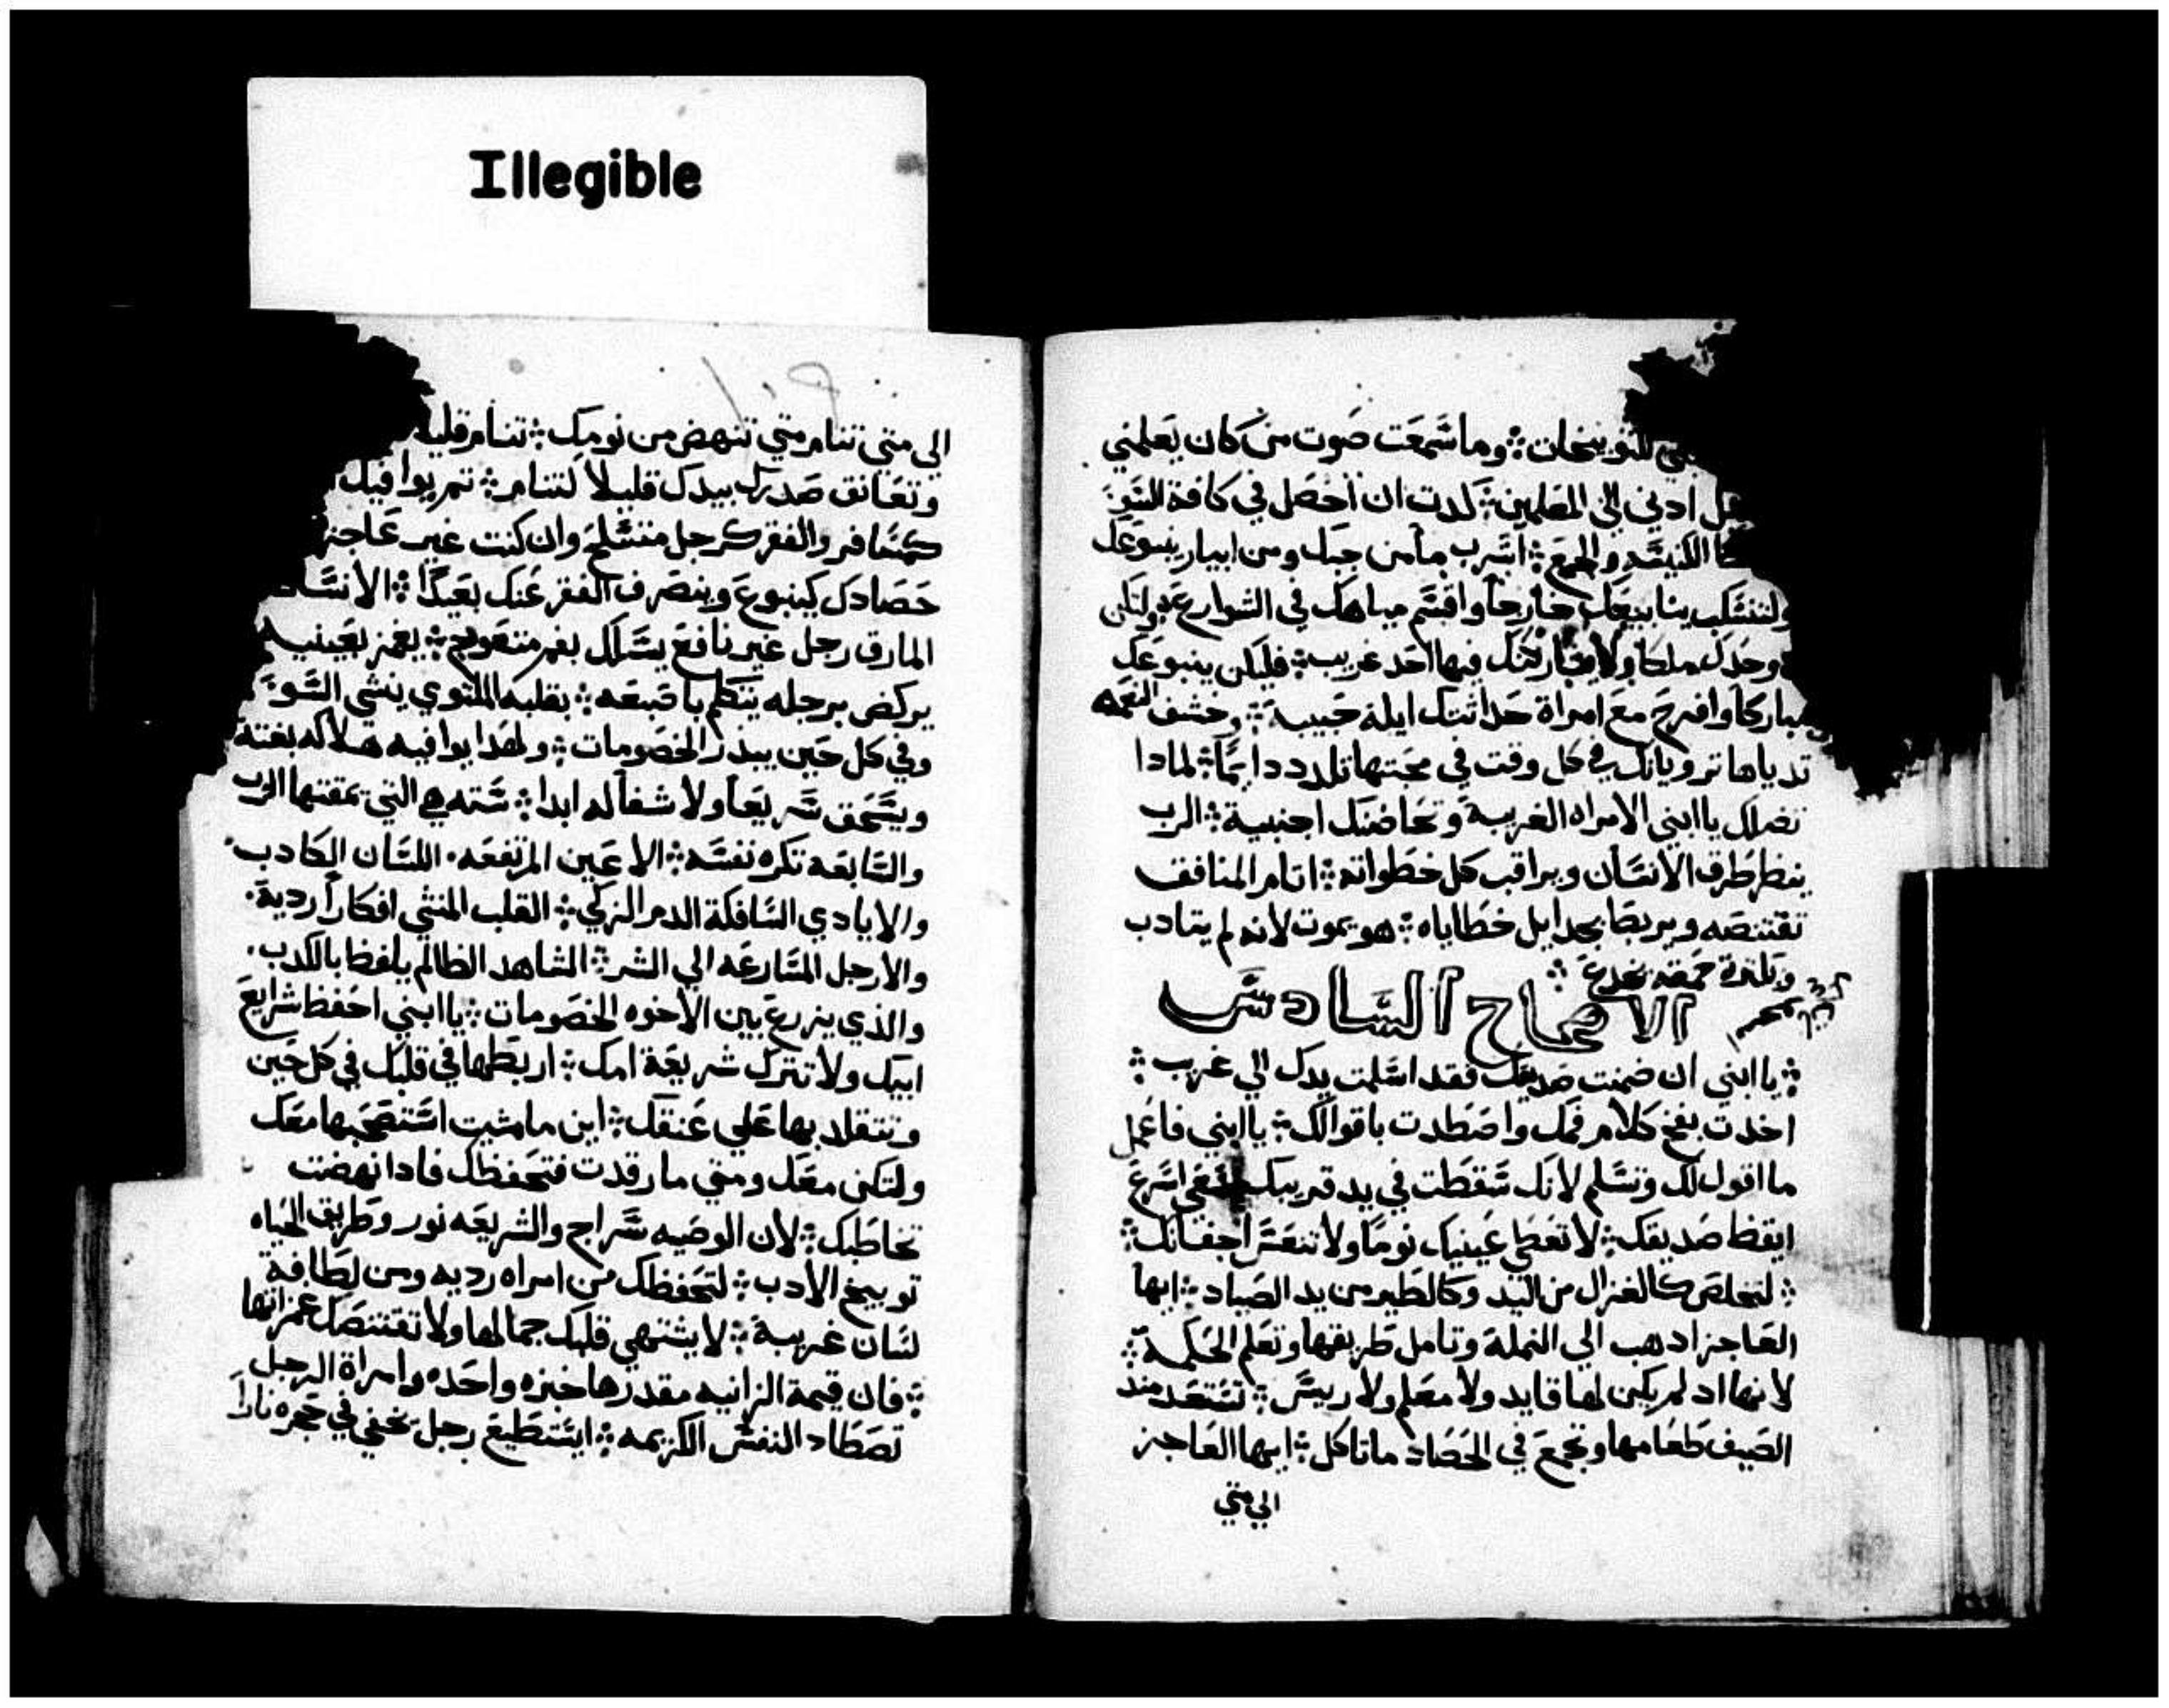 Illegible
للتوبيخات ؞ وما سَمعَت صَوت من كان يَعلمني
ادني الي المعَلمين ؞ كدت ان احصَل في كافة السَو
الكنيسَه والجمعَ ؞ اشَرب ما من جبك ومن ابيار ينبوعَك
ولتنسَكب ينابيعَك خارجاً واقسَم مياهك في الشوارعَ ولتكن
وحدك ملكا ولا يشاركنك فيها احَد غريب ؞ فليكن ينبوعَك
مباركاً وافرحَ معَ امراة حَداثتك ايلة حَبيبة ؞ وخشف النعمه
تدياها ترويانك في كل وقت في محَبتها تلدد دايمًا ؞ لمادا
تضلك يا ابني الامراه الغريبة وتحَاضنك اجنبية ؞ الرب
ينظر طرق الانسَان ويراقب كل خطواته ؞ اتام المنافق
تقتنصَه ويربط بحدايل خطاياه ؞ هو يموت لانه لم يتادب
وبكترة حمَقه يخدعَ ؞
الاصحاح السَادسَ
؞ يا ابني ان ضمنت صَديقك فقد اسَلمت يدك الي غريب ؞
اخدت بفخ كلام فمك واصَطدت باقوالك ؞ يا ابني فاعَمل
ما اقول لك وتسَلم لانك سَقطت في يد قريبك اسَرعَ
ايقظ صَديقك ؞ لا تعَطي عَينيك نومًا ولا تنعَسَ اجفانك ؞
؞ لتخلصَ كالغزال من اليد وكالطير من يد الصَياد ؞ ايها
العَاجز ادهب الي النملة وتامل طريقها وتعَلم الحَكمة ؞
لانها اد لم يكن لها قايد ولا معَلم ولا رييسَ ؞ تسَتعَد مند
الصَيف طعَامها وتجمعَ في الحَصَاد ما تاكل ؞ ايها العَاجز
الي متي
الي متي تنام متي تنهض من نومك ؞ تنام قليلا
وتعَانق صَدرك بيدك قليلا لتنام ؞ تم يوافيك
كمسَافر والفقر كرجل متسَلحَ وان كنت غير عَاجز
حَصَادك كينبوعَ وينصَرف الفقر عَنك بعَيدًا ؞ الانسَان
المارق رجل غير نافعَ يسَلك بفم متعَوج ؞ يغمز بعَينيه
يركض برجله يتكلم باصَبعَه ؞ بقلبه الملتوي ينشي السَو
وفي كل حَين يبذر الخصَومات ؞ ولهدا يوافيه هلاكه بغتة
ويسَحَق سَريعَاً ولا شفا له ابدا ؞ سَته هي التي يمقتها الرب
والسَابعَه تكره نفسَه ؞ الاعَين المرتفعَه . اللسَان الكادب .
والايادي السَافكة الدم الزكي ؞ القلب المنشي افكاراً ردية .
والارجل المسَارعَه الي الشر ؞ الشاهد الظالم يلفظ بالكدب .
والذي يزرعَ بين الاخوه الخصَومات ؞ يا ابني احَفظ شرايعَ
ابيك ولا تترك شريعَة امك ؞ اربطها في قلبك في كل حَين
وتتقلد بها عَلي عَنقك ؞ اين ما مشيت استَصَحَبها معَك
ولتكن معَك ومتي ما رقدت فتحَفظك فادا نهضت
تخاطبك ؞ لان الوصَيه سَراج والشريعَه نور وطريق الحَياه
توبيخ الادب ؞ لتحَفظك من امراه رديه ومن لطافة
لسَان غريبة ؞ لا يشتهي قلبك جمالها ولا تقتنصَك غمزاتها
؞ فان قيمة الزانيه مقدرها خبزه واحَده وامراة الرجل
تصَطاد النفسَ الكريمه ؞ ايسَتطيعَ رجل يخفي في حَجره ناراً